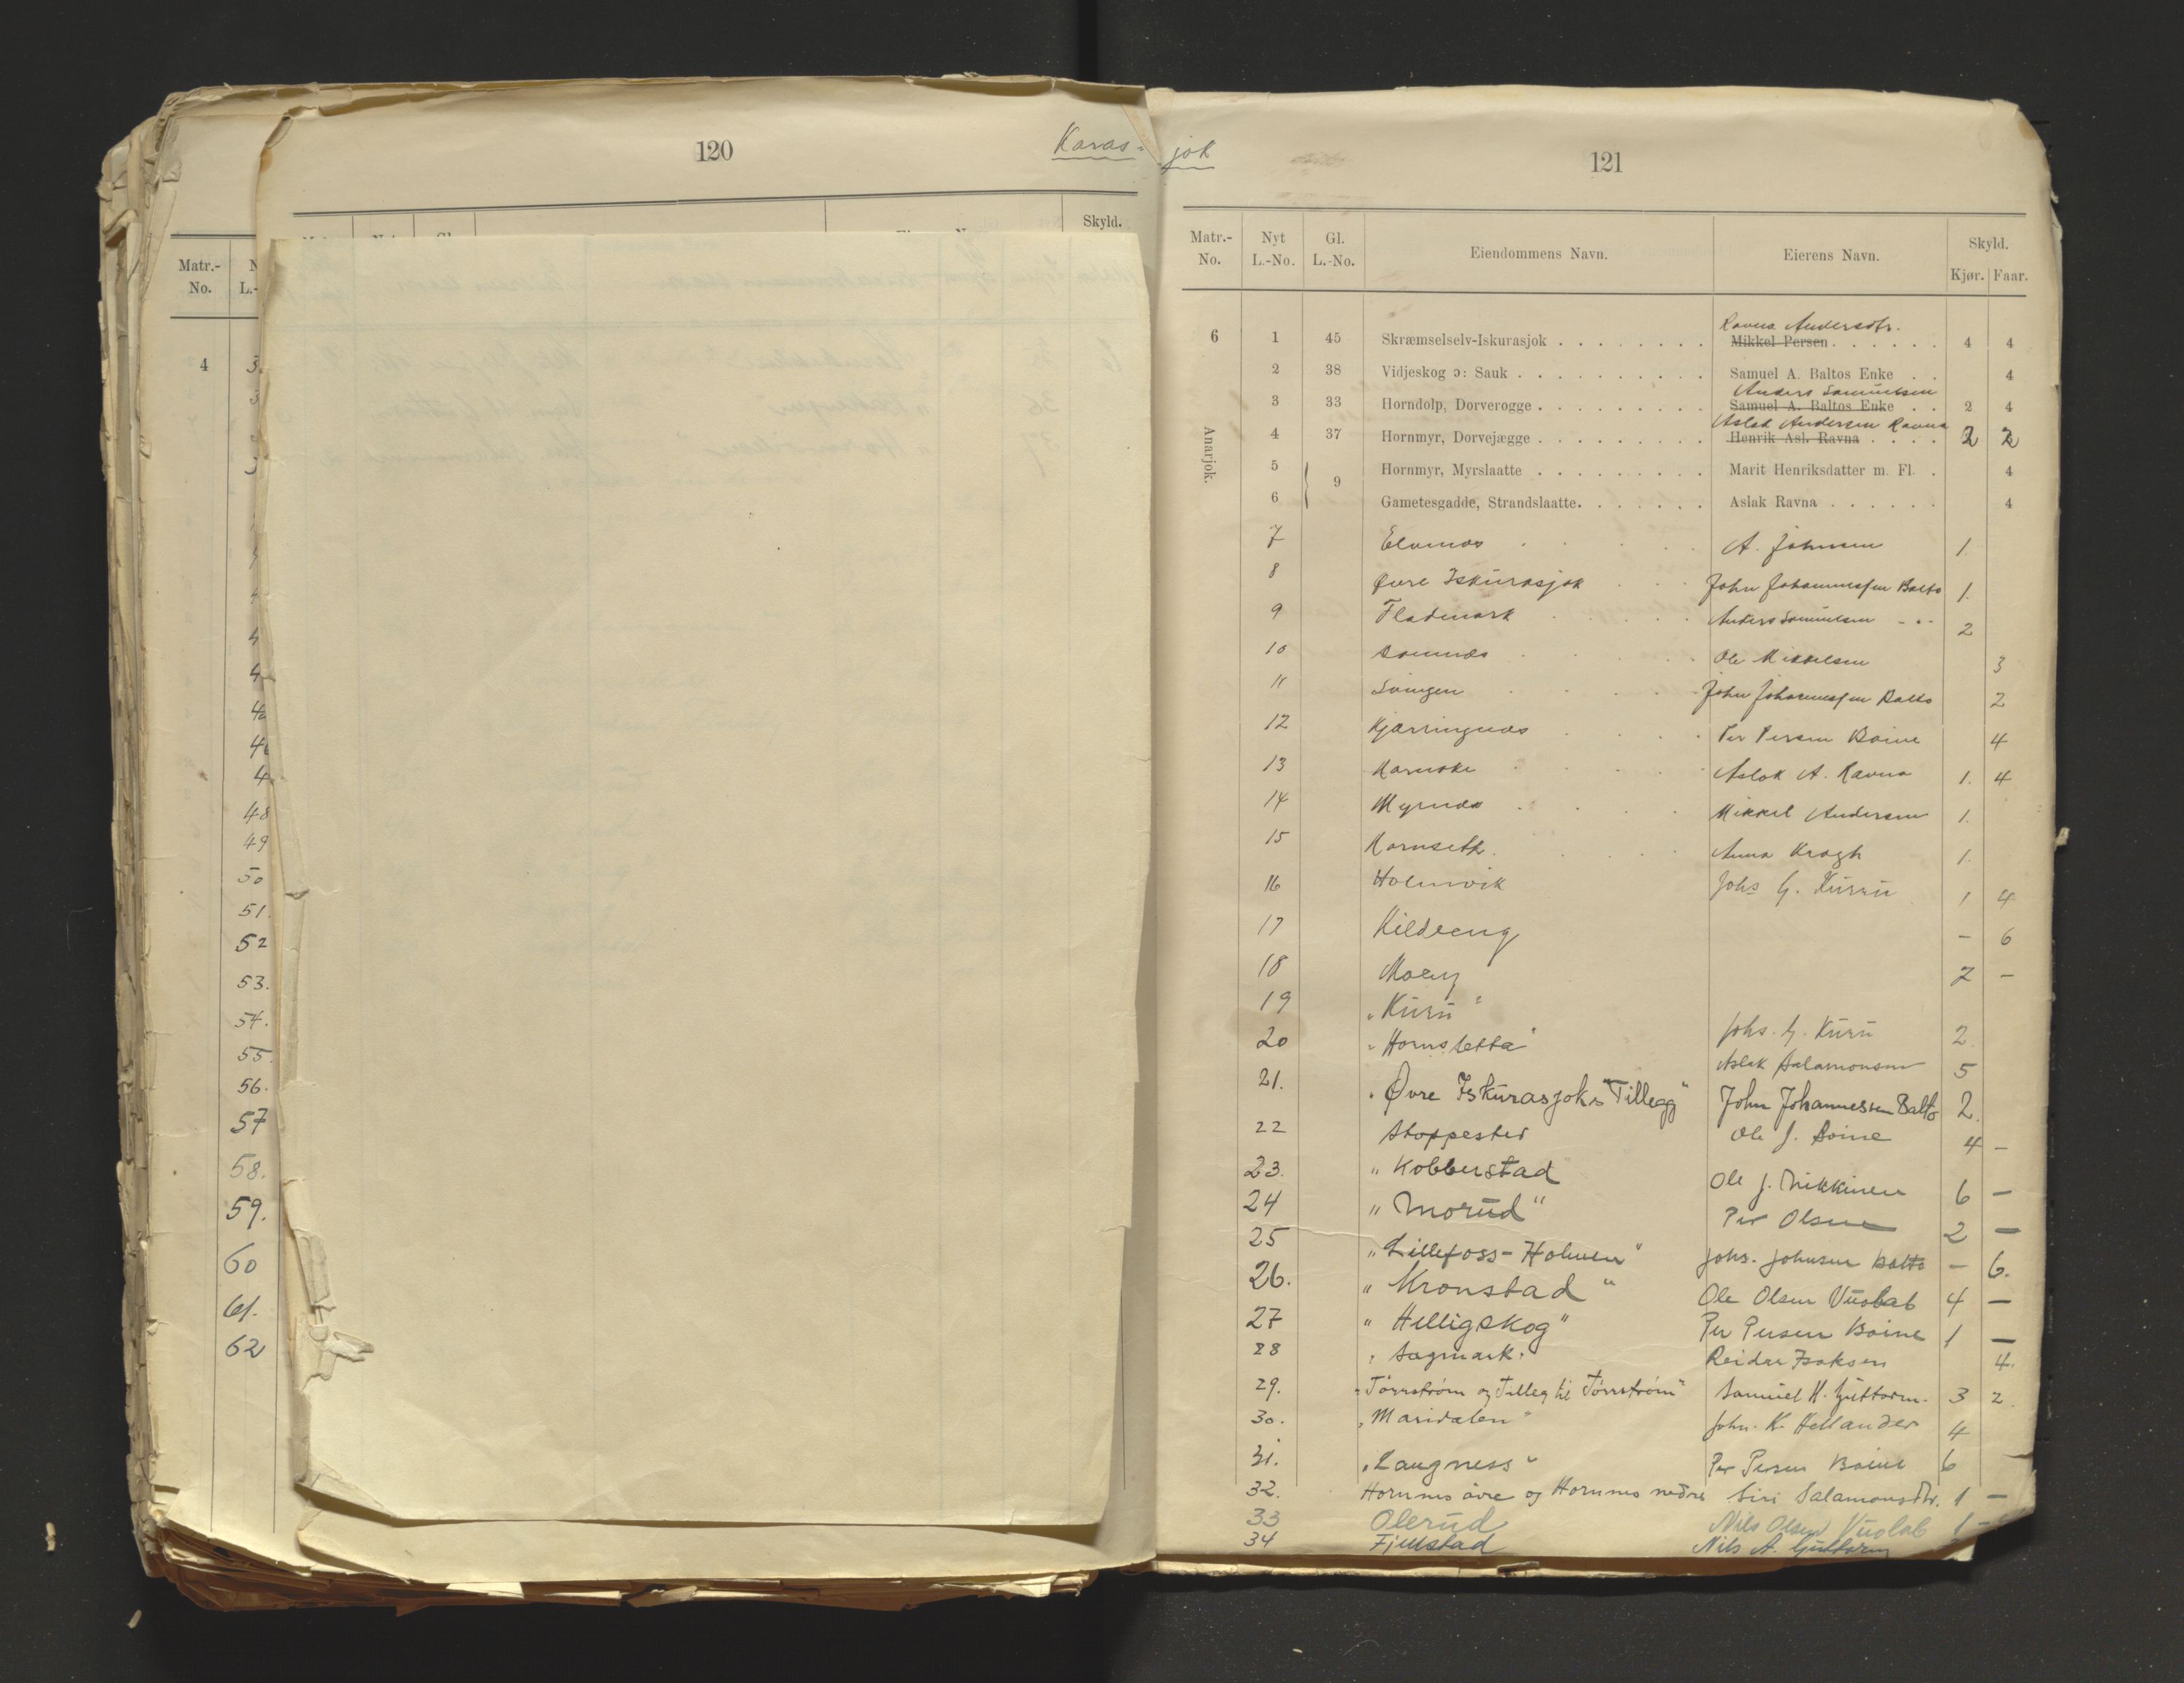 120
Karas-
Skyld.
Matr.-
No.
4
48
49
50
51.
52
53.
54.
55.
56.
57
58.
59.
60
61.
62
jok
121
Matr.-No. Nyt L.-No. Gl. L.-No. Eiendommens Navn. Eierens Navn. Skyld. Kjør. Faar.
Anarjok.
Ravna Andersdtr.
6 1 45 Skræmselselv-Iskurasjok . . . . . . . . Mikkel Persen . . . . . . 4 4
2 38 Vidjeskog ɔ: Sauk . . . . . . . . . . Samuel A. Baltos Enke . . 4
Anders Samuelsen
3 33 Horndolp, Dorverogge . . . . . . . . . Samuel A. Baltos Enke . . 2 4
Aslak Andersen Ravna
4 37 Hornmyr, Dorvejægge . . . . . . . . . Henrik Asl. Ravna . . . . 2 2
5 9 Hornmyr, Myrslaatte . . . . . . . . . Marit Henriksdatter m. Fl. . 4
6 Gametesgadde, Strandslaatte . . . . . . . Aslak Ravna . . . . . . 4
7 Elvenæs A. Johnsen 1
8 Øvre Iskurasjok John Johannessen Balto 1.
9 Fladmark Anders Samuelsen - - 2
10 Ole Mikkelsen 3
11 Svingen John Johannessen Balto 2
12 Kjærringnæs Per Persen Boine 4
13 Aslak A. Ravna 1. 4
14 Myrnæs Mikkel Andersen 1.
15 Hornseth. Anna Kragh 1.
16 Holmvik Johs G. Kuru 1 4
17 Kildeeng - 6
18 Moeng 2 -
19 "Kuru" Johs. G. Kuru 2
20 "Hornsletta" Aslak Salamonsen 5
21. "Øvre Iskurasjoks Tillegg" John Johannessen Balto 2.
22 Stoppested Ole J. Boine 4 -
23. "Kobberstad Ole J. Nikkinen 6 -
24 "Morud" Per Olsen 2 -
25 "Lillefoss-Holmen" Johs. Johnsen Balto - 6.
26. "Kronstad" Ole Olsen Vuolab 4 -
27 "Helligskog" Per Persen Boine 1 -
28 "Sagmark" Reidar Isaksen 4.
29. "Tørrstrøm og Tilleg til Tørrstrøm" Samuel H. Guttorm. 3 2.
30. "Maridalen" John. K. Hellander 4
31. "Langness" Per Persen Boine 6
32. Hornnes øvre og Hornnes nedre Siri Salamonsdtr. 1 -
33 Olerud Nils Olsen Vuolab 1 -
34 Fjellstad Nils A. Guttorm